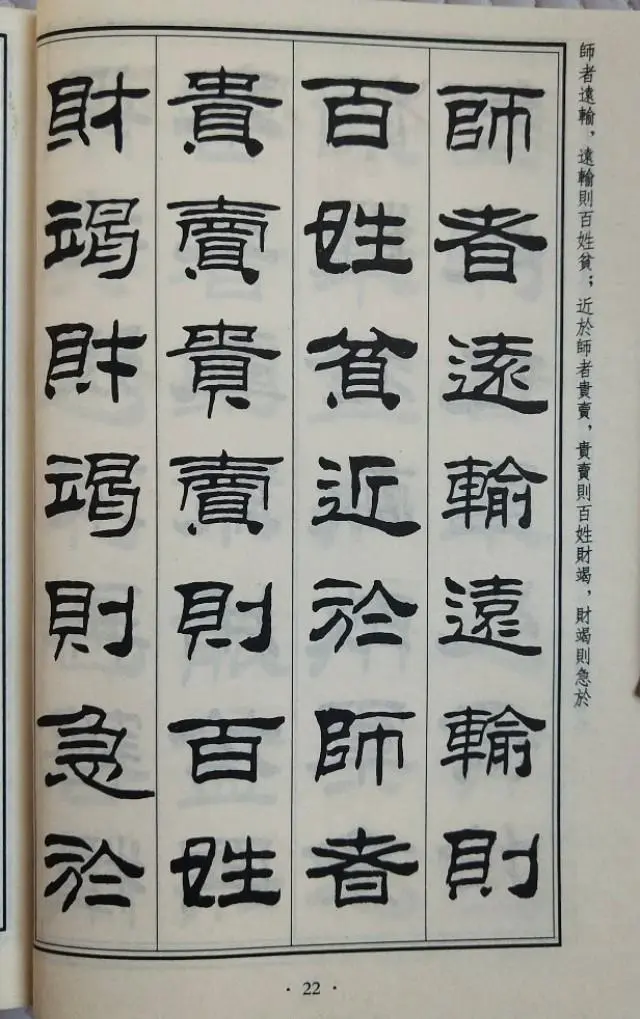 師者遠輸，遠輸則百姓貧；近於師者貴賣，貴賣則百姓財竭，財竭則急於
師者遠輸遠輸則
百姓貧近於師者
貴賣貴賣則百姓
財竭財竭則急於
· 22 ·